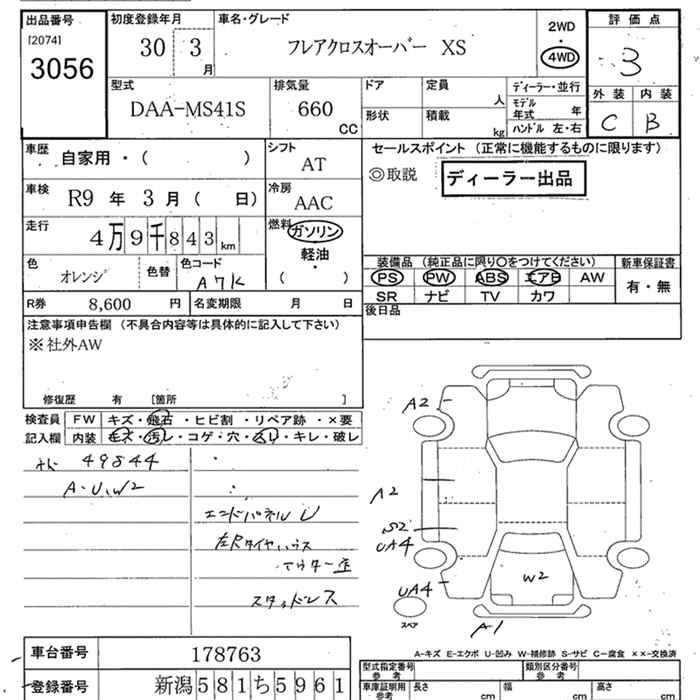 出品番号 初度登録年月 車名・グレード 評価点
[2074] 3056 30 3月 フレアクロスオーバー XS 2WD ・ 4WD 3
型式 排気量 ドア 定員 人 ディーラー・並行 外装 内装
DAA-MS41S 660 CC 形状 積載 kg モデル年式 年 ハンドル 左・右 C B
車歴 自家用・( ) シフト AT セールスポイント (正常に機能するものに限ります)
◎取説 ディーラー出品
車検 R9 年 3 月 ( 日) 冷房 AAC
走行 4万9千843km 燃料 ガソリン・軽油・( )
色 オレンジ 色替 色コード A7K
装備品 (純正品に限り○をつけてください) 新車保証書
PS PW ABS エアB AW 有・無
SR ナビ TV カワ
R券 8,600 円 名変期限 月 日
後日品
注意事項申告欄 (不具合内容等は具体的に記入して下さい)
※社外AW
修復歴 有 [箇所 ]
検査員記入欄 FW キズ・飛石・ヒビ割・リペア跡・×要
内装 キズ・汚レ・コゲ・穴・スレ・キレ・破レ
49844
A・U、W2
エンドパネル U
左Rタイヤハウス
スタッドレス
A2
A2
S2
UA4
UA4
W2
A1
スペア
A-キズ E-エクボ U-凹み W-補修跡 S-サビ C-腐食 ××-交換済
車台番号 178763
登録番号 新潟581ち5961
型式指定番号 参考 類別区分番号 参考
車庫証明用 参考 長さ cm 幅 cm 高さ cm